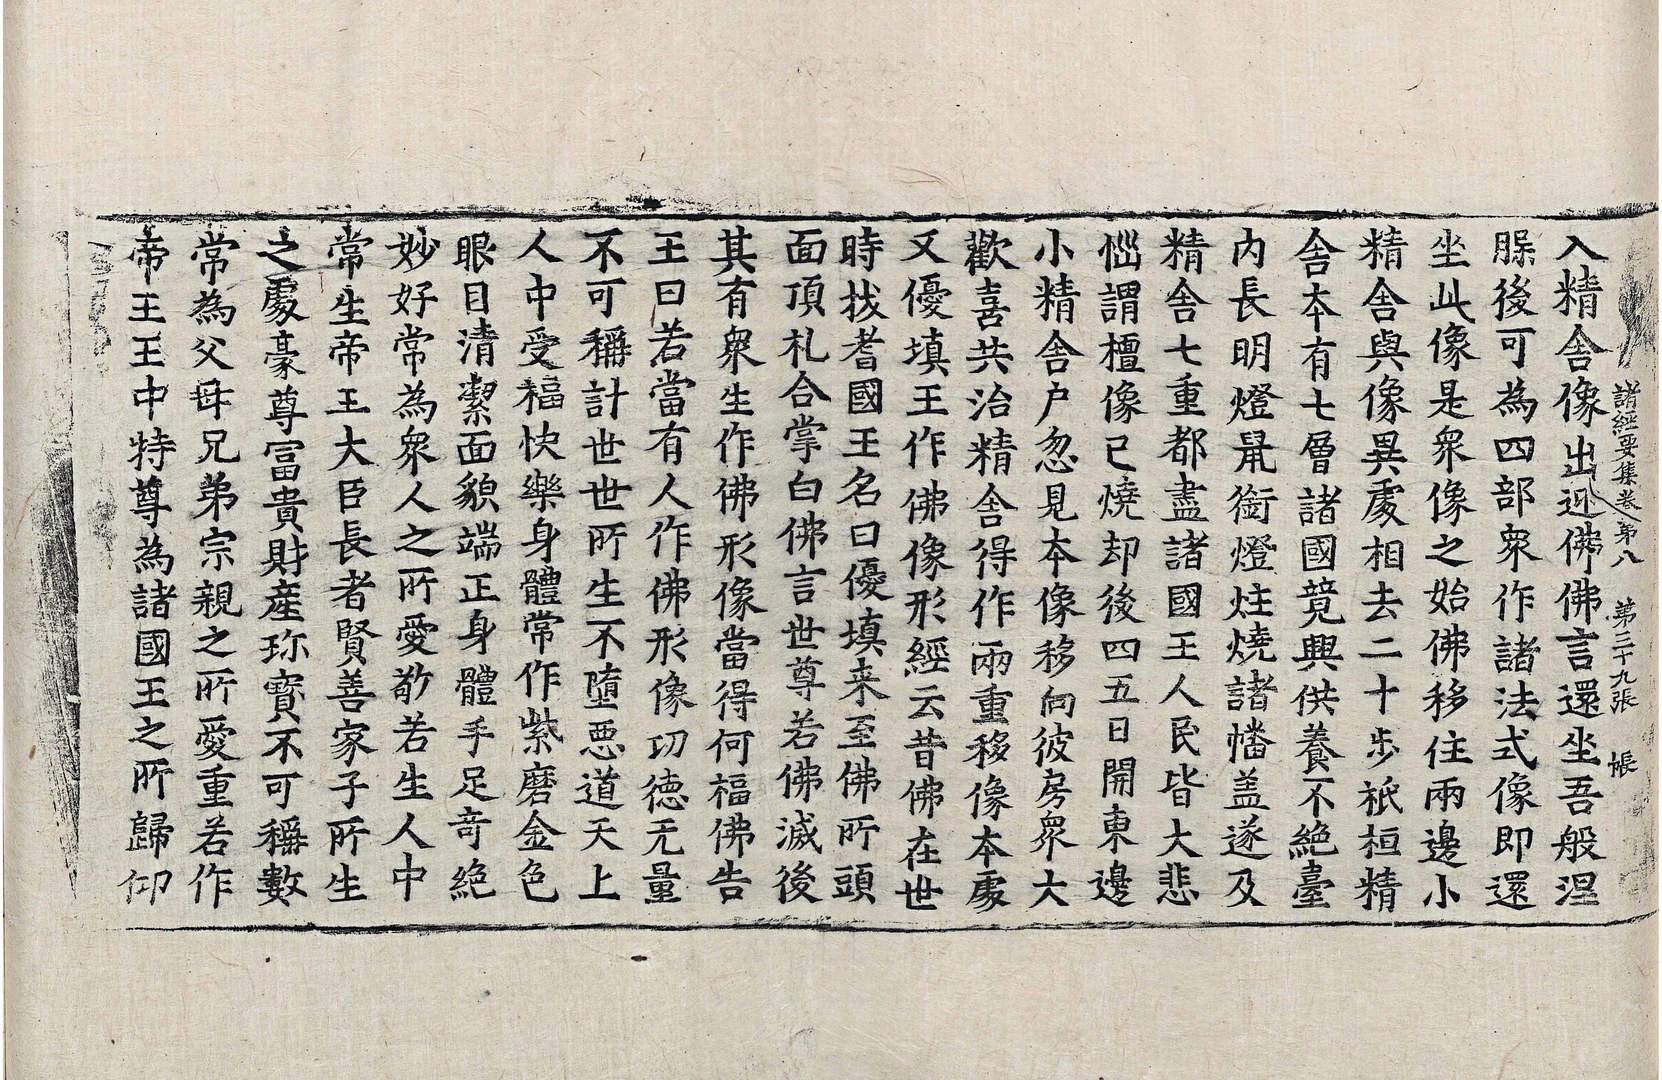 諸經要集卷第八 第三十九張 帳
入精舍像出迎佛佛言還坐吾般涅
𦝫後可為四部衆作諸法式像即還
坐此像是衆像之始佛移住兩邊小
精舍與像異處相去二十步祇桓精
舍本有七層諸國競興供養不絶臺
內長明燈鼠銜燈炷燒諸幡盖遂及
精舍七重都盡諸國王人民皆大悲
惱謂檀像已燒却後四五日開東邊
小精舍户忽見本像移向彼房衆大
歡喜共治精舍得作兩重移像本處
又優填王作佛像形經云昔佛在世
時拔耆國王名曰優填来至佛所頭
面頂礼合掌白佛言世尊若佛滅後
其有衆生作佛形像當得何福佛告
王曰若當有人作佛形像功德无量
不可稱計世世所生不墮惡道天上
人中受福快樂身體常作紫磨金色
眼目清潔面貌端正身體手足奇絶
妙好常為衆人之所愛敬若生人中
常生帝王大臣長者賢善家子所生
之處豪尊富貴財産珎寳不可稱數
常為父母兄弟宗親之所愛重若作
帝王王中特尊為諸國王之所歸仰